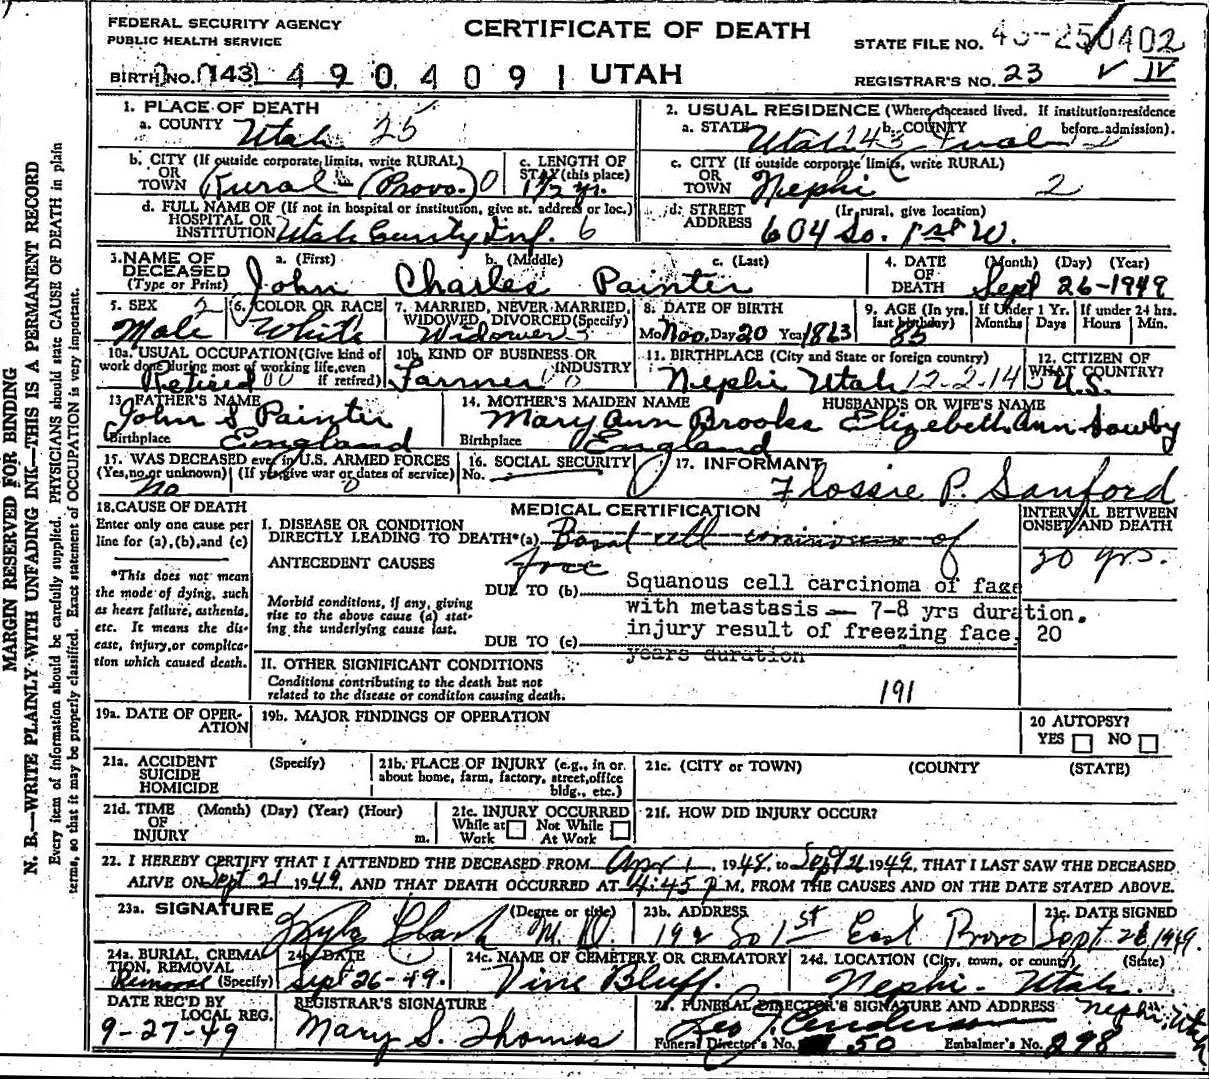 FEDERAL SECURITY AGENCY
PUBLIC HEALTH SERVICE
CERTIFICATE OF DEATH
STATE FILE NO.
BIRTH NO. (143) 4 9 0 4 0 9 1 UTAH
REGISTRAR'S NO. 23 V IV
1. PLACE OF DEATH
a. COUNTY Utah 25
2. USUAL RESIDENCE (Where deceased lived. If institution: residence before admission).
a. STATE Utah 143 b. COUNTY
b. CITY (If outside corporate limits, write RURAL) OR TOWN Rural (Provo) 0
c. LENGTH OF STAY (this place) 1 1/2 yr.
c. CITY (If outside corporate limits, write RURAL) OR TOWN Nephi 2
d. FULL NAME OF (If not in hospital or institution, give st. address or loc.) HOSPITAL OR INSTITUTION Utah County Inf. 6
d. STREET ADDRESS (If rural, give location) 604 So. 1st W.
3. NAME OF DECEASED (Type or Print) a. (First) b. (Middle) c. (Last)
John Charles Painter
4. DATE OF DEATH (Month) (Day) (Year) Sept 26-1949
5. SEX 2 Male
6. COLOR OR RACE White
7. MARRIED, NEVER MARRIED, WIDOWED, DIVORCED (Specify) Widower 3
8. DATE OF BIRTH Mo Nov. Day 20 Yea 1863
9. AGE (In yrs. last birthday) 85
If Under 1 Yr. Months Days
If under 24 hrs. Hours Min.
10a. USUAL OCCUPATION (Give kind of work done during most of working life, even if retired) Retired 00
10b. KIND OF BUSINESS OR INDUSTRY Farmer 00
11. BIRTHPLACE (City and State or foreign country) Nephi Utah 12-2-143
12. CITIZEN OF WHAT COUNTRY? U.S.
13. FATHER'S NAME John S Painter
Birthplace England
14. MOTHER'S MAIDEN NAME Mary Ann Brooks
Birthplace England
HUSBAND'S OR WIFE'S NAME Elizabeth Ann Sowby
15. WAS DECEASED ever in U.S. ARMED FORCES (Yes, no, or unknown) (If yes, give war or dates of service)
No 0
16. SOCIAL SECURITY No.
17. INFORMANT
Flossie P. Sanford
18. CAUSE OF DEATH
Enter only one cause per line for (a), (b), and (c)
*This does not mean the mode of dying, such as heart failure, asthenia, etc. It means the disease, injury, or complication which caused death.
MEDICAL CERTIFICATION
INTERVAL BETWEEN ONSET AND DEATH
I. DISEASE OR CONDITION DIRECTLY LEADING TO DEATH*(a) Basal cell of face
20 yrs.
ANTECEDENT CAUSES
Morbid conditions, if any, giving rise to the above cause (a) stating the underlying cause last.
DUE TO (b) Squanous cell carcinoma of face
with metastasis — 7-8 yrs duration.
DUE TO (c) injury result of freezing face, 20
years duration
II. OTHER SIGNIFICANT CONDITIONS
Conditions contributing to the death but not related to the disease or condition causing death.
191
19a. DATE OF OPERATION
19b. MAJOR FINDINGS OF OPERATION
20 AUTOPSY? YES NO
21a. ACCIDENT SUICIDE HOMICIDE (Specify)
21b. PLACE OF INJURY (e.g., in or about home, farm, factory, street, office bldg., etc.)
21c. (CITY or TOWN) (COUNTY) (STATE)
21d. TIME OF INJURY (Month) (Day) (Year) (Hour) m.
21e. INJURY OCCURRED While at Work Not While At Work
21f. HOW DID INJURY OCCUR?
22. I HEREBY CERTIFY THAT I ATTENDED THE DECEASED FROM Apr 1, 1948, to Sept 26 1949, THAT I LAST SAW THE DECEASED
ALIVE ON Sept 21 1949, AND THAT DEATH OCCURRED AT 4:45 P M, FROM THE CAUSES AND ON THE DATE STATED ABOVE.
23a. SIGNATURE (Degree or title) Clark M.D.
23b. ADDRESS 192 So 1st East Provo
23c. DATE SIGNED Sept 28, 1949.
24a. BURIAL, CREMATION, REMOVAL (Specify) Removal
24b. DATE Sept 26-49.
24c. NAME OF CEMETERY OR CREMATORY Vine Bluff
24d. LOCATION (City, town, or county) (State) Nephi - Utah.
DATE REC'D BY LOCAL REG. 9-27-49
REGISTRAR'S SIGNATURE Mary S. Thomas
FUNERAL DIRECTOR'S SIGNATURE AND ADDRESS Nephi, Utah
Leo T. Anderson
Funeral Director's No. 50 Embalmer's No. 298
MARGIN RESERVED FOR BINDING
N. B.—WRITE PLAINLY WITH UNFADING INK—THIS IS A PERMANENT RECORD
Every item of information should be carefully supplied. PHYSICIANS should state CAUSE OF DEATH in plain
terms, so that it may be properly classified. Exact statement of OCCUPATION is very important.